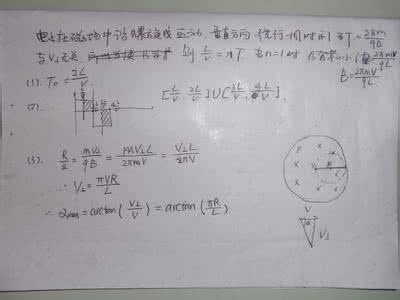 电子在磁场中沿螺旋线运动，垂直方向绕行一周时间 T = 2πm/qB
与V⊥无关 由 L/V = nT 当n=1时 B有最小值 B = 2πmV/qL
(1). T₀ = 2L/V
(2).
[L/V 2L/V]∪[3L/V, 4L/V]
(3). R/2 = mV⊥/qB = mV⊥L/2πmV = V⊥L/2πV
∴ V⊥ = πVR/L
∴ αmax = arctan(V⊥/V) = arctan(πR/L)
R
V
α
V⊥